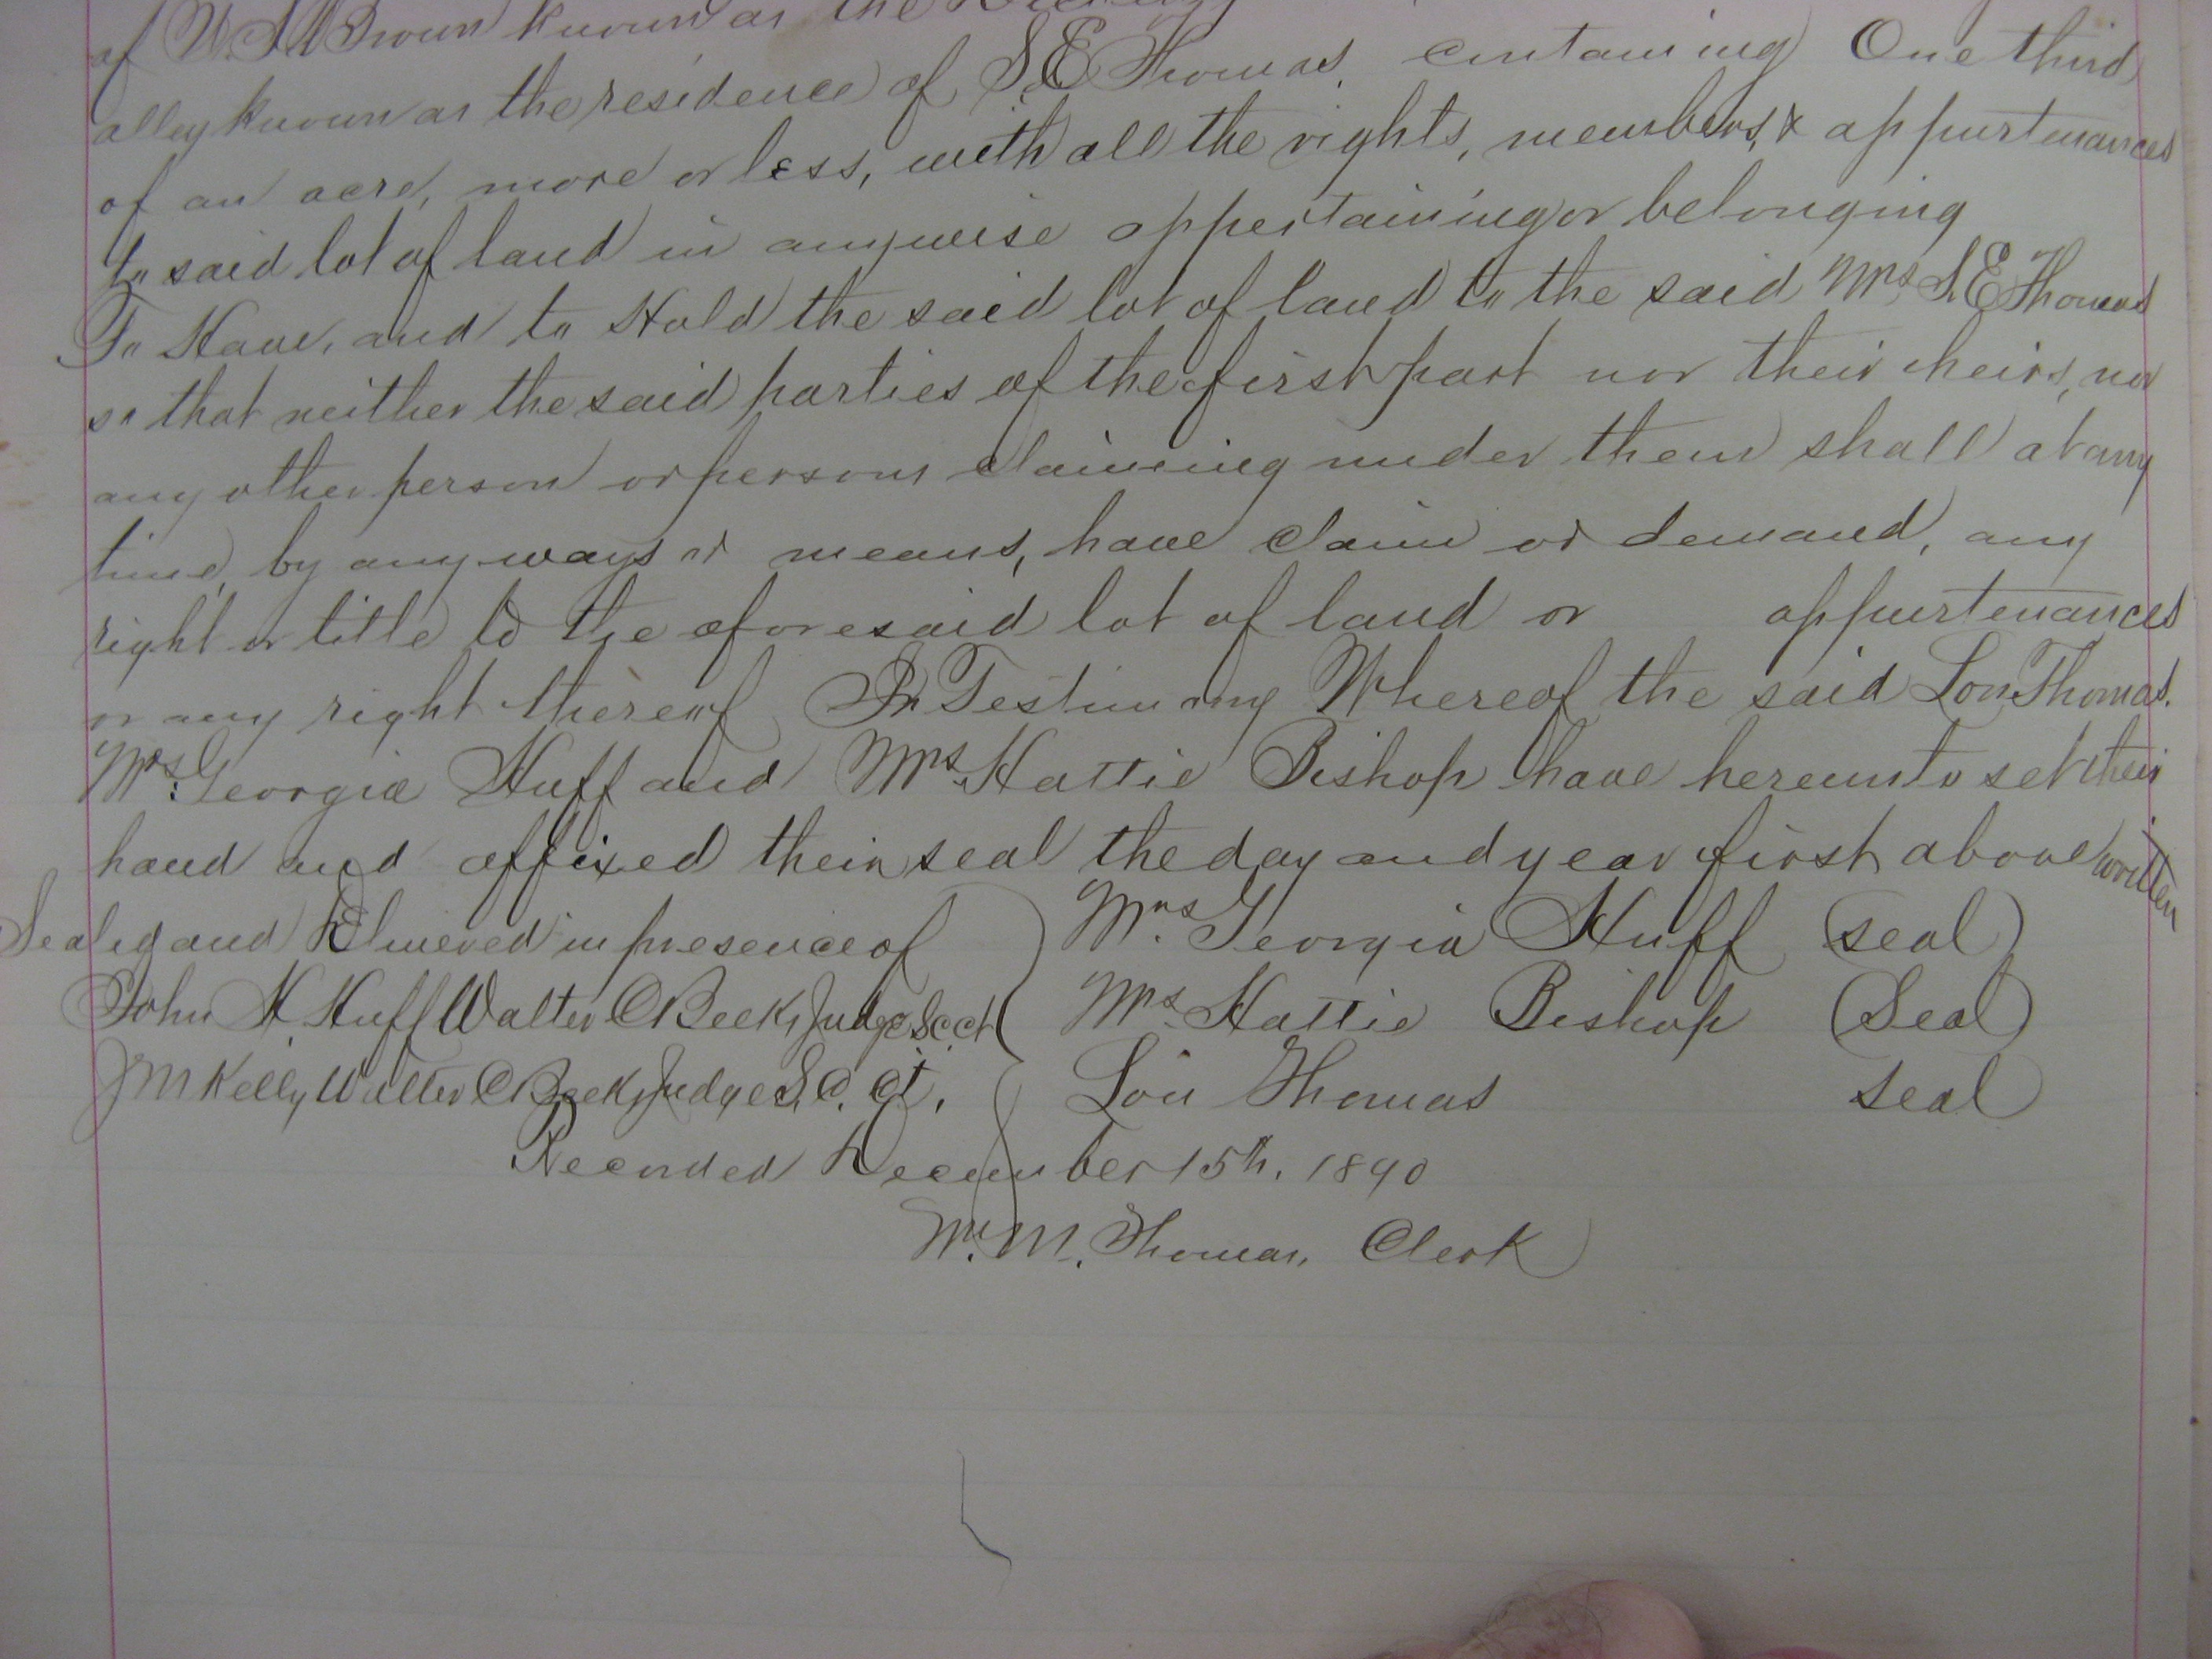 of W. A. Brown known as the
alley known as the residence of S. E. Thomas, containing One third
of an acre, more or less, with all the rights, members, & appurtenances
to said lot of land in anywise appertaining or belonging
To Have, and to Hold the said lot of land to the said Mrs S. E Thomas
so that neither the said parties of the first part nor their heirs, nor
any other person or persons claiming under them shall at any
time, by any ways or means, have claim or demand, any
right or title to the aforesaid lot of land or appurtenances
or any right thereof In Testimony Whereof the said Lon Thomas.
Mrs. Georgia Huff and Mrs. Hattie Bishop have hereunto set their
hand and affixed their seal the day and year first above written
Sealed and Delivered in presence of
John H. Huff Walter C Beeks Judge S.C. Ct
J M Kelly Walter C Beeks Judge S. C. Ct.
Mrs. Georgia Huff (seal)
Mrs. Hattie Bishop (Seal)
Lon Thomas seal
Recorded December 15th, 1890
W. M. Thomas, Clerk